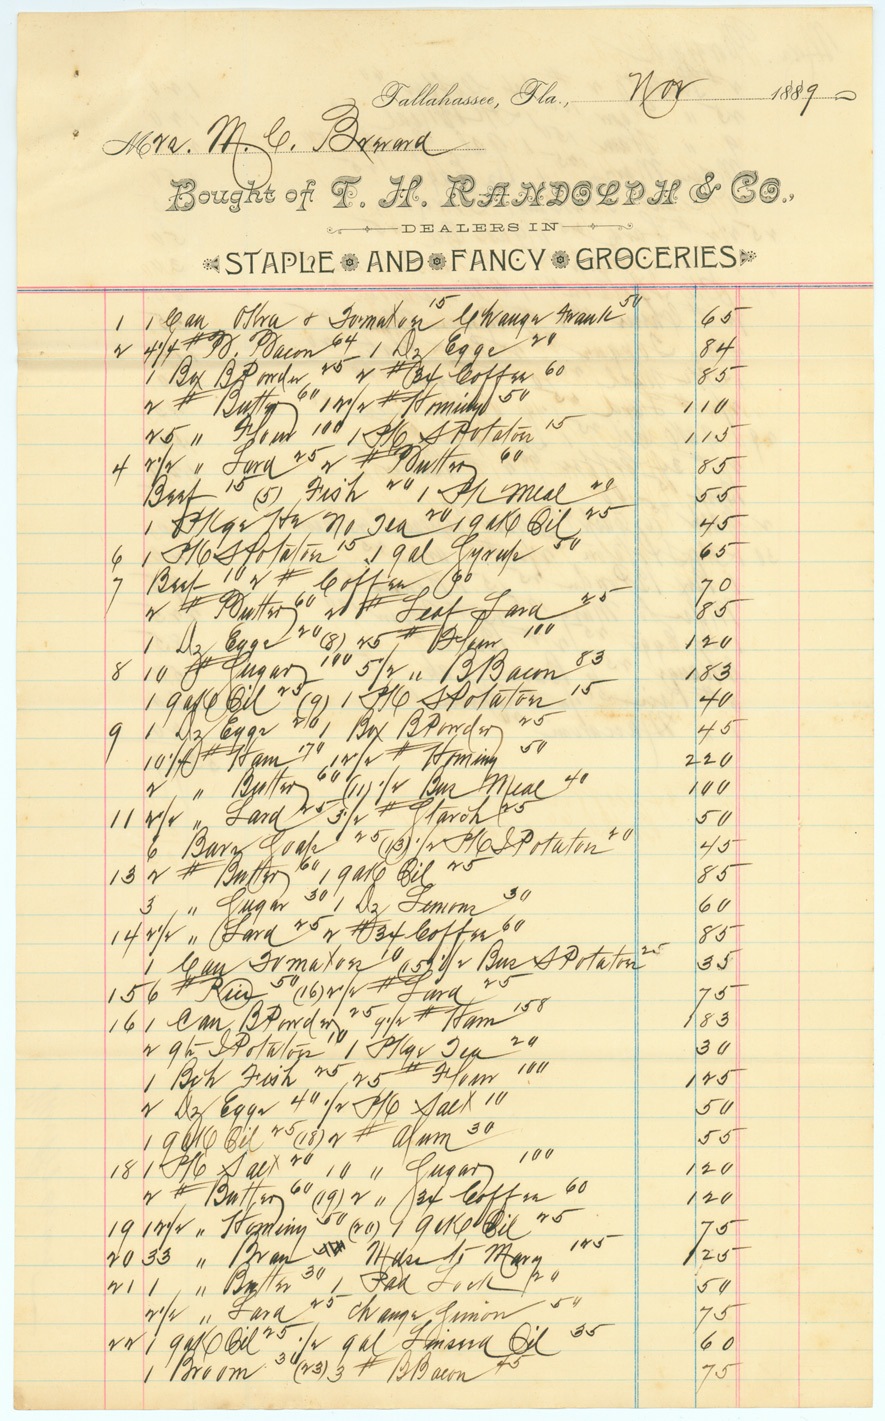 Tallahassee, Fla., Nov 1889
Mrs. M. C. Brevard
Bought of T. H. RANDOLPH & CO.,
DEALERS IN
STAPLE AND FANCY GROCERIES
1 1 Can Okra & Tomatoes 15 Change Frank 50 65
2 4 1/4 # B. Bacon 64 1 Dz Eggs 20 84
1 Box BPowder 25 2 # 34 Coffee 60 85
2 # Butter 60 12 1/2 # Hominy 50 110
25 " Flour 100 1 PK SPotatoes 15 115
4 2 1/2 " Lard 25 2 # Butter 60 85
Beef 15 (5) Fish 20 1 Pk Meal 20 55
1 Pkge He No Tea 20 1 gal K Oil 25 45
6 1 PK SPotatoes 15 1 gal Syrup 50 65
7 Beef 10 2 # Coffee 60 70
2 # Butter 60 2 # Leaf Lard 25 85
1 Dz Eggs 20 (8) 25 # Flour 100 120
8 10 # Sugar 100 5 1/2 " BBacon 83 183
1 gal K Oil 25 (9) 1 PK SPotatoes 15 40
9 1 Dz Eggs 20 1 Box BPowder 25 45
10 # Ham 170 12 1/2 # Hominy 50 220
2 " Butter 60 (11) 1/2 Bus Meal 40 100
11 2 1/2 " Lard 25 3 1/2 # Starch 25 50
6 Bars Soap 25 (13) 1/2 PK IPotatoes 20 45
13 2 # Butter 60 1 gal K Oil 25 85
3 " Sugar 30 1 Dz Lemons 30 60
14 2 1/2 " Lard 25 2 # 34 Coffee 60 85
1 Can Tomatoes 10 (15) 1/2 Bus SPotatoes 25 35
15 6 # Rice 50 (16) 2 1/2 # Lard 25 75
16 1 Can BPowder 25 9 1/2 # Ham 158 183
2 qts IPotatoes 10 1 Pkge Tea 20 30
1 Bch Fish 25 25 # Flour 100 125
2 Dz Eggs 40 1/2 PK Salt 10 50
1 gal K Oil 25 (18) 2 # Alum 30 55
18 1 PK Salt 20 10 " Sugar 100 120
2 # Butter 60 (19) 2 " 34 Coffee 60 120
19 12 1/2 " Hominy 50 (20) 1 gal K Oil 25 75
20 33 " Bran Mdse to Mary 125 125
21 1 " Butter 30 1 Pad Lock 20 50
2 1/2 " Lard 25 Change Simon 50 75
22 1 gal K Oil 25 1/2 gal Linseed Oil 35 60
1 Broom 30 (23) 3 # BBacon 45 75